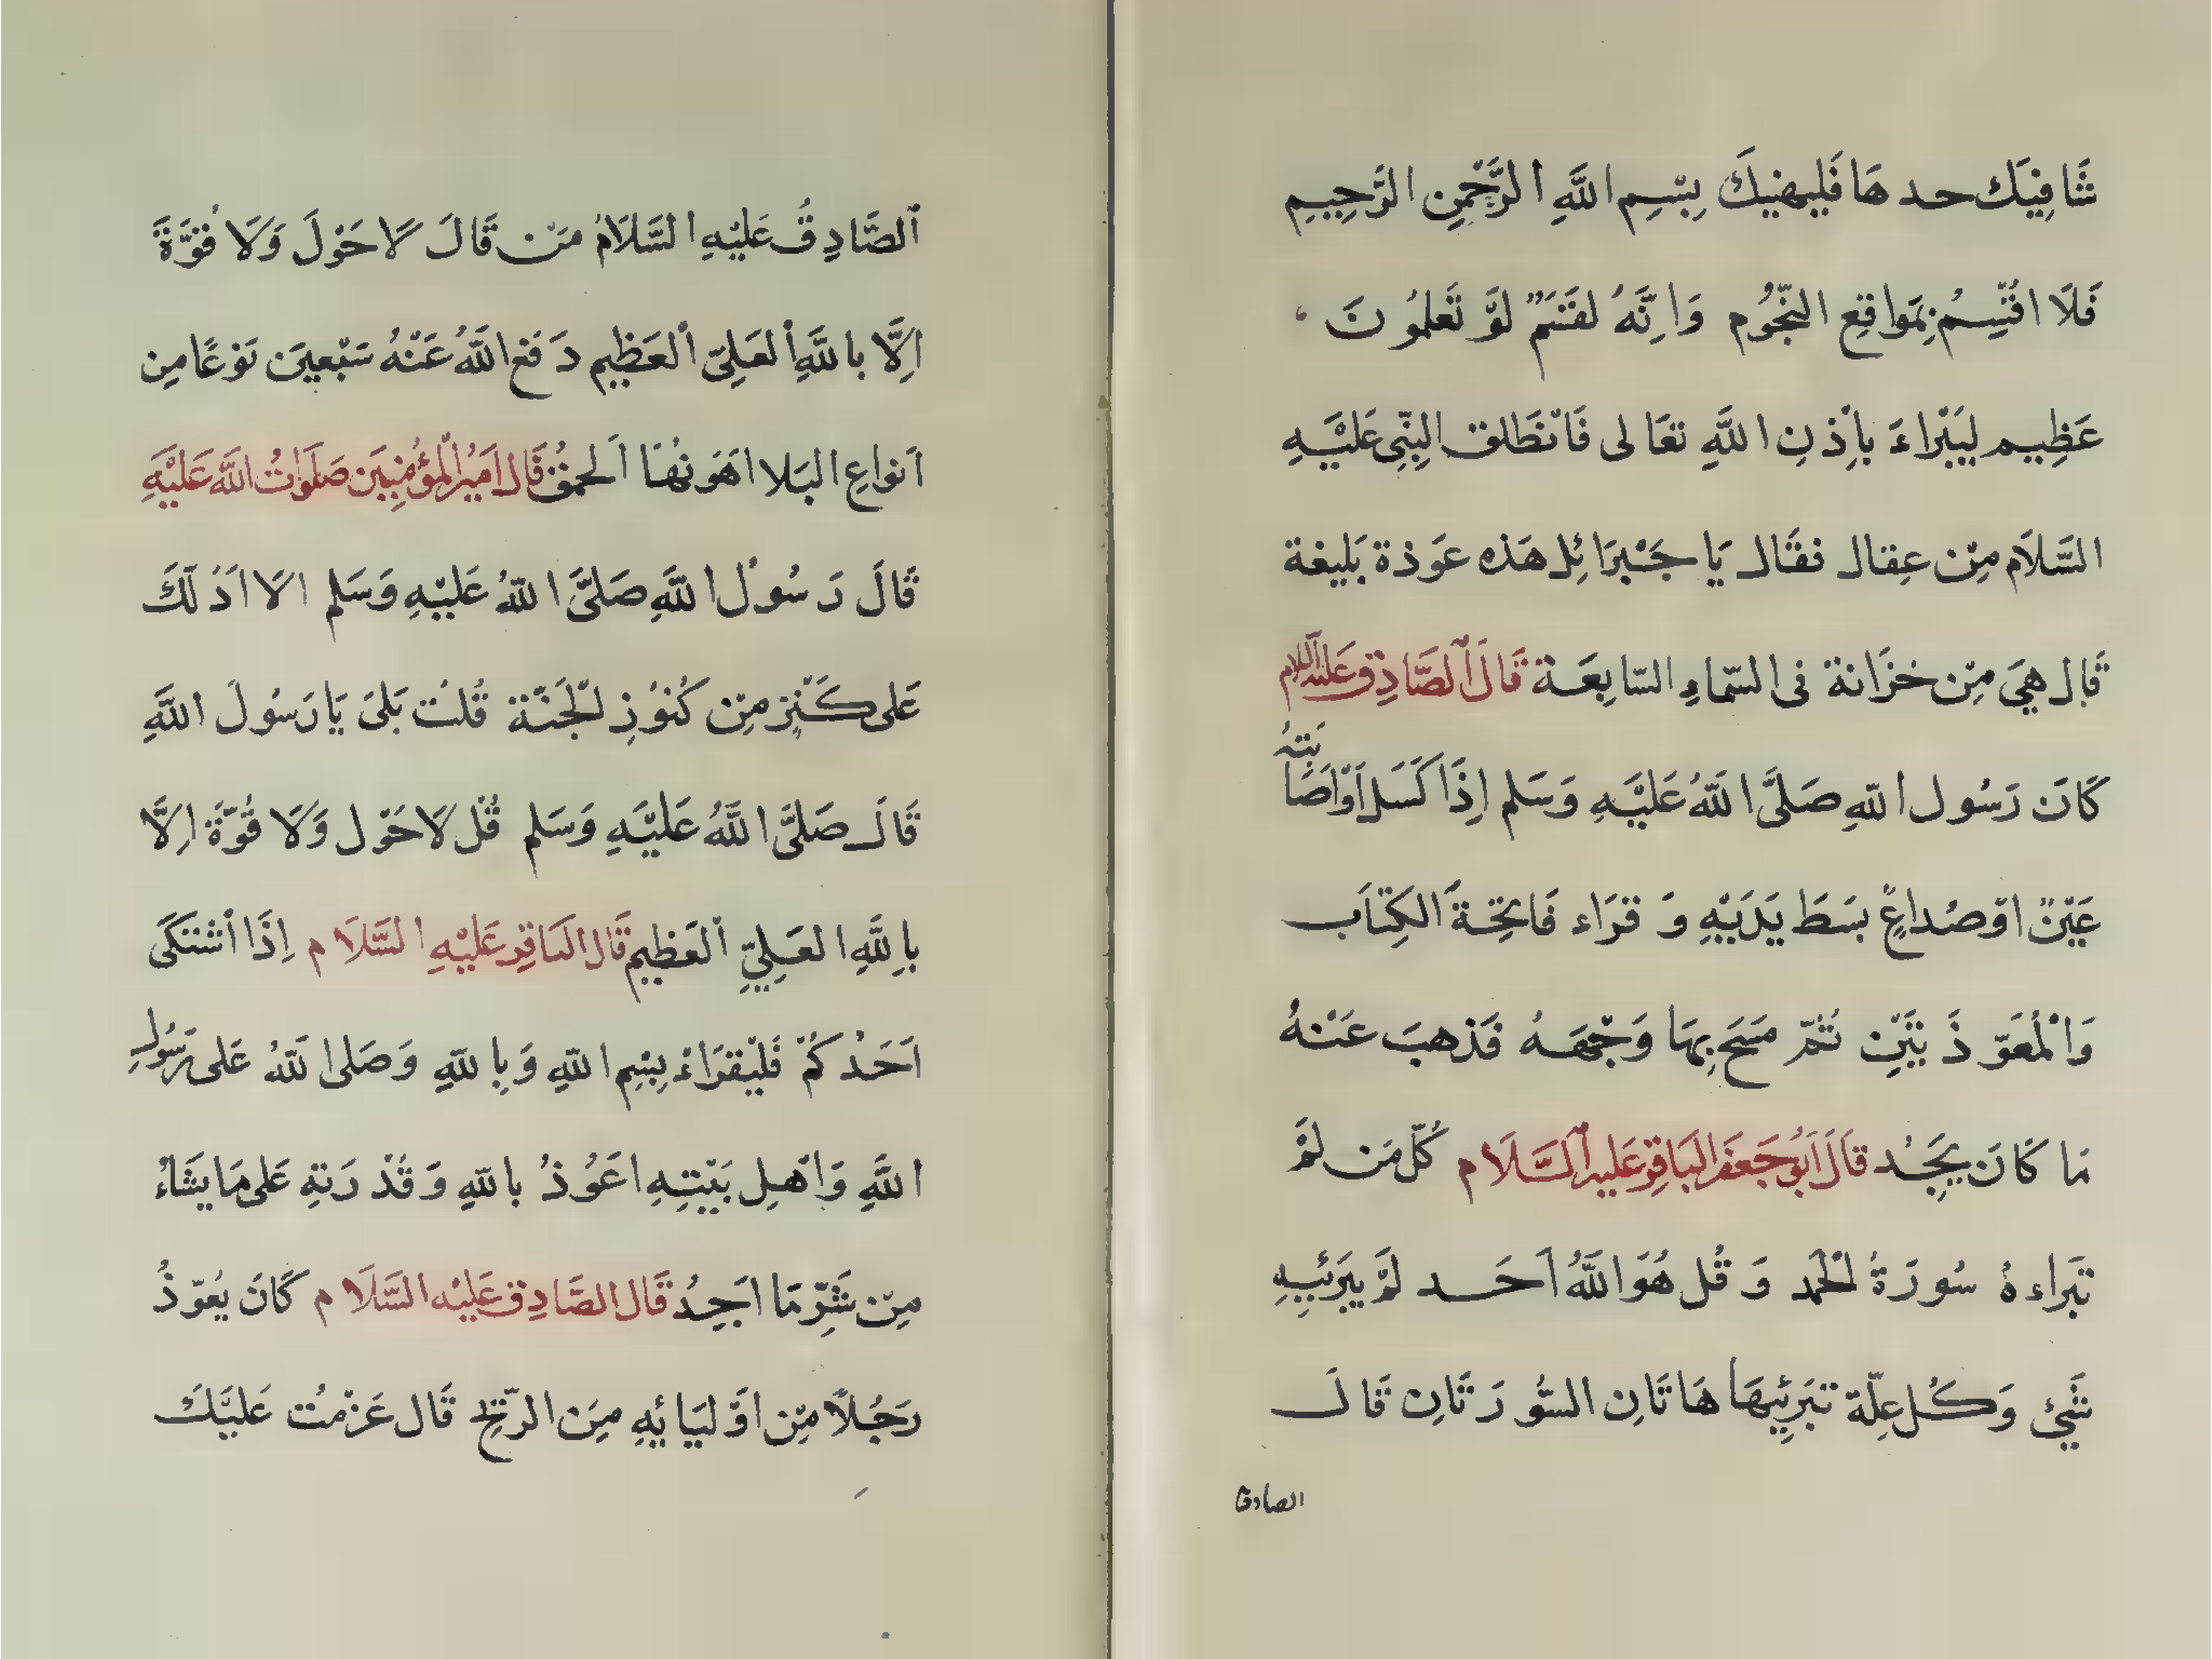 شَافِيَك حد هَا فَليهنيكَ بِسْمِ اللَّهِ الرَّحْمٰنِ الرَّحِيمِ
فَلَا اقُسِمُ بِمَواقِعِ النّجُومِ وَاِنَّهُ لقَسَمٌ لوَّ تَعْلمُونَ
عَظِيم ليَبْراءَ بِاِذنِ اللَّهِ تعَالى فَانْطَلق النِّبى عَليْهِ
السَّلَام مِنْ عِقال فقَال يَا جَبْرَائِل هَذه عَوَذة بَليغة
قَال هِيَ مِنْ خزَانة فى السّماءِ السّابِعَة قَالَ الصَّادِق عَليهِ السَّلام
كَانَ رَسُول اللهِ صَلىَّ اللّهُ عَليْهِ وَسَلم اِذَا كَسَل اَوْ اَصَابَتهُ
عَيْنٌ اوْ صُداعٍ بسَطَ يَدَيْهِ وَ قرَاء فَاتِحِةَ الكِتاَب
وَالْمُعَوّذَ تَيَنِ ثُمّ مَسَحَ بِهَا وَجْهَهُ فَذهبَ عَنْهُ
مَا كَانَ يَجِدُ قاَلَ اَبُو جَعفَر البَاقِرِ عَليهِ السَّلَام كُلّ مَن لمْ
تبَراءهُ سُورَةُ الْحَمد وَ قُل هُوَ اللَّهُ اَحَد لمْ يبرَئيهِ
شَيْئ وَكُل عِلّة تبَرئِيهَا هَاتَانِ السُّورَتَانِ قَالَ
الصادق
اَلصَّادِقُ عَليْهِ السَّلَامُ مَنْ قَالَ لَا حَوْلَ وَلَا قُوَّةَ
اِلَّا باللَّهِ الْعَلِىّ الْعَظِيم دَفع اللَّهُ عَنْهُ سَبْعينَ نَوْعًا مِن
اَنواعِ البَلا اهَوَنهُا اَلحمقُ قَال اَمَيُر الْمُؤمِنيَن صَلَوَاتُ اللَّه عَلَيْهِ
قَالَ رَسُولُ اللَّهِ صَلىَّ اللّهُ عَليْهِ وَسَلم الَا اَدُلَكَ
عَلى كَنْزٍ مِنْ كُنوُزِ الْجَنّة قُلتُ بَلىَ يَا رَسُولَ اللَّهِ
قَالَ صَلىَّ اللَّهُ عَليْهِ وَسَلم قُل لَا حَوْل وَلَا قُوّةَ اِلَّا
باِللَّهِ العَلِيِّ الْعَظِيم قَال البَاقِرِ عَليْهِ السَّلَام اِذَا اشْتكىَ
اَحَدُكُمْ فَليْقرَاءْ بِسْمِ اللّهِ وَبِاللّهِ وَصَلى اللّهُ عَلى رَسُول
اللَّهِ وَاَهْل بَيْتِهِ اعَوُذُ باللّهِ وَ قُدْرَتهِ عَلى مَا يشَاءُ
مِنْ شَرِّ مَا اَجِدُ قَال الصَّادِق عَليْهِ السَّلَام كَانَ يعُوّذُ
رَجُلاً مِنْ اوَليَائِهِ مِنَ الرّيحِ قَال عَزمْتُ عَليْكَ